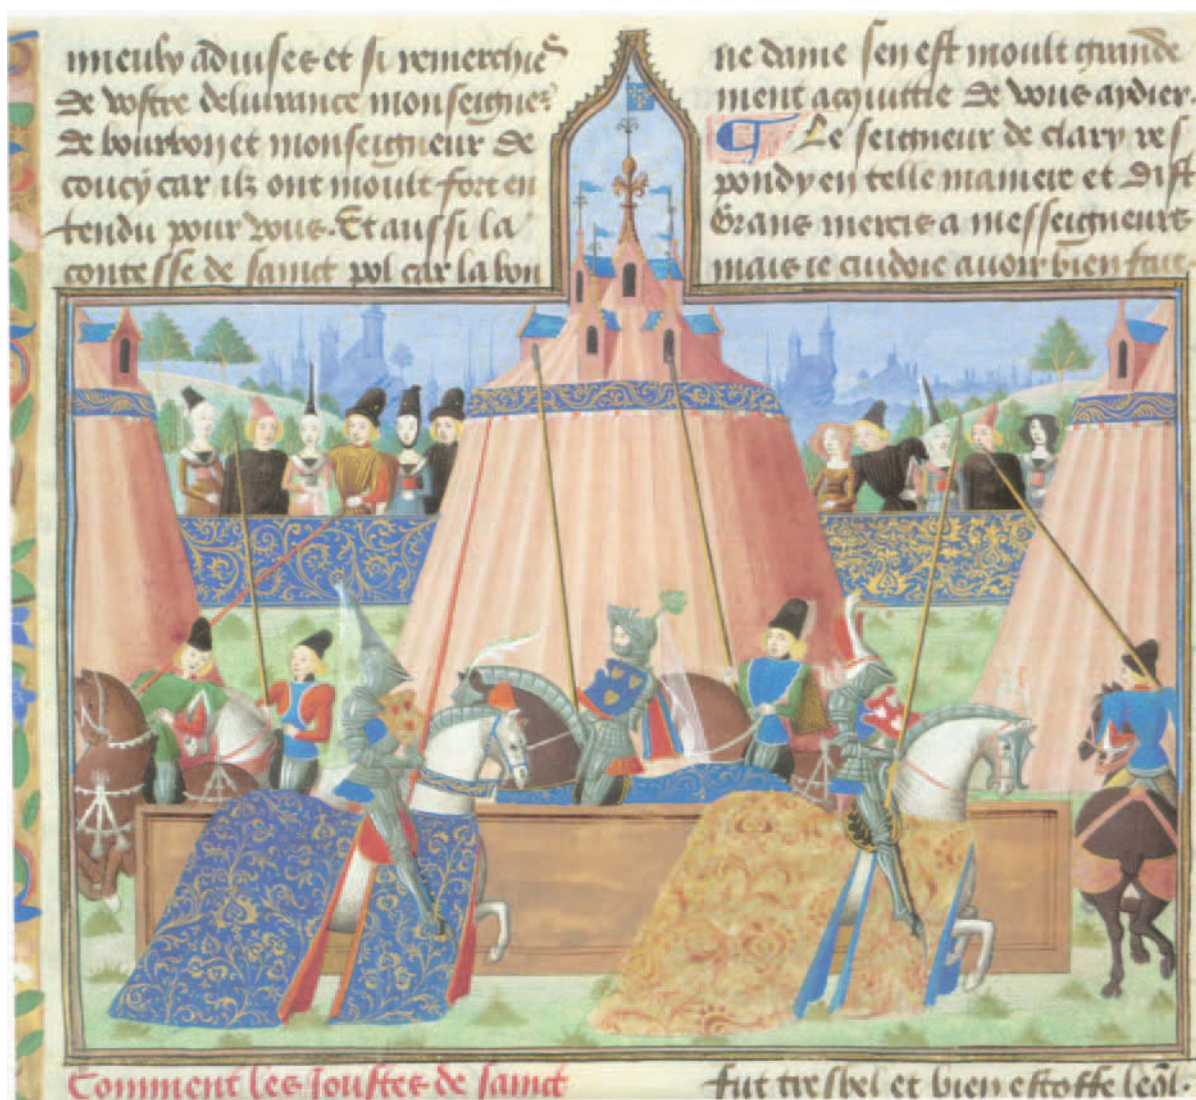 mieulx aduises et si remerchies
de vostre deliurance monseigneur
de bourbon et monseigneur de
coucy car ilz ont moult fort en
tendu pour vous. Et aussi la
contesse de sainct pol car la bon
ne dame sen est moult grande
ment acquittie de vous aydier.
Le seigneur de clary res
pondy en telle maniere et dist
Grans mercis a messeigneurs
mais ie cuidoie auoir bien fait.
Comment les Joustes de sainct
fut tresbel et bien estoffe